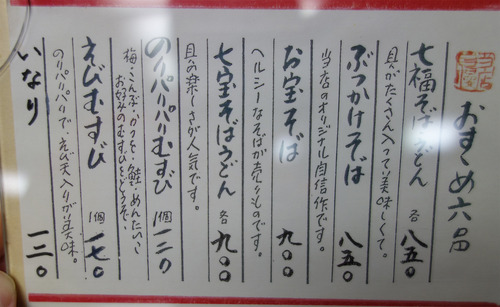 おすすめ六品
七福そばうどん 各 八五〇
具がたくさん入って美味しくて。
ぶっかけそば 八五〇
当店のオリジナル自信作です。
お宝そば 九〇〇
ヘルシーなそばが売りものです。
七宝そばうどん 各 九〇〇
具の楽しさが人気です。
のりパリパリむすび 1個 一二〇
梅・こんぶ・かつを・鮭・めんたいこ
お好みのむすびをどうぞ。
えびむすび 1個 一七〇
のりパリパリで、えび天入りが美味。
いなり 一二〇